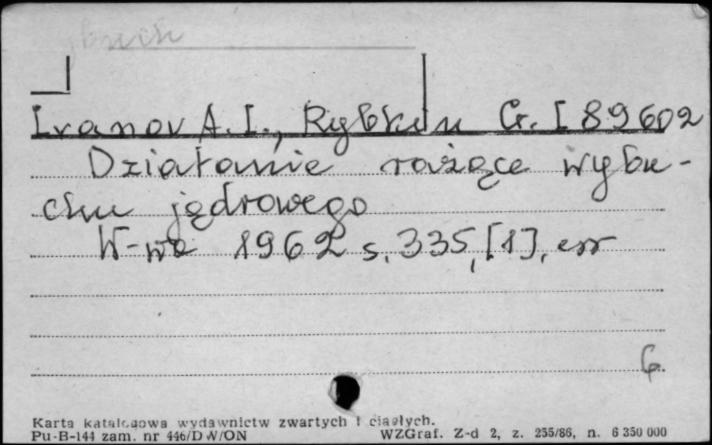 ybuch
Ivanov A. I., Rybkin G. I 89602
Działanie rażące wybu-
chu jądrowego
W-wa 1962 s. 335, [1], err
6
Karta katalogowa wydawnictw zwartych i ciągłych.
Pu-B-144 zam. nr 446/DW/ON WZGraf. Z-d 2, z. 255/86, n. 6 350 000